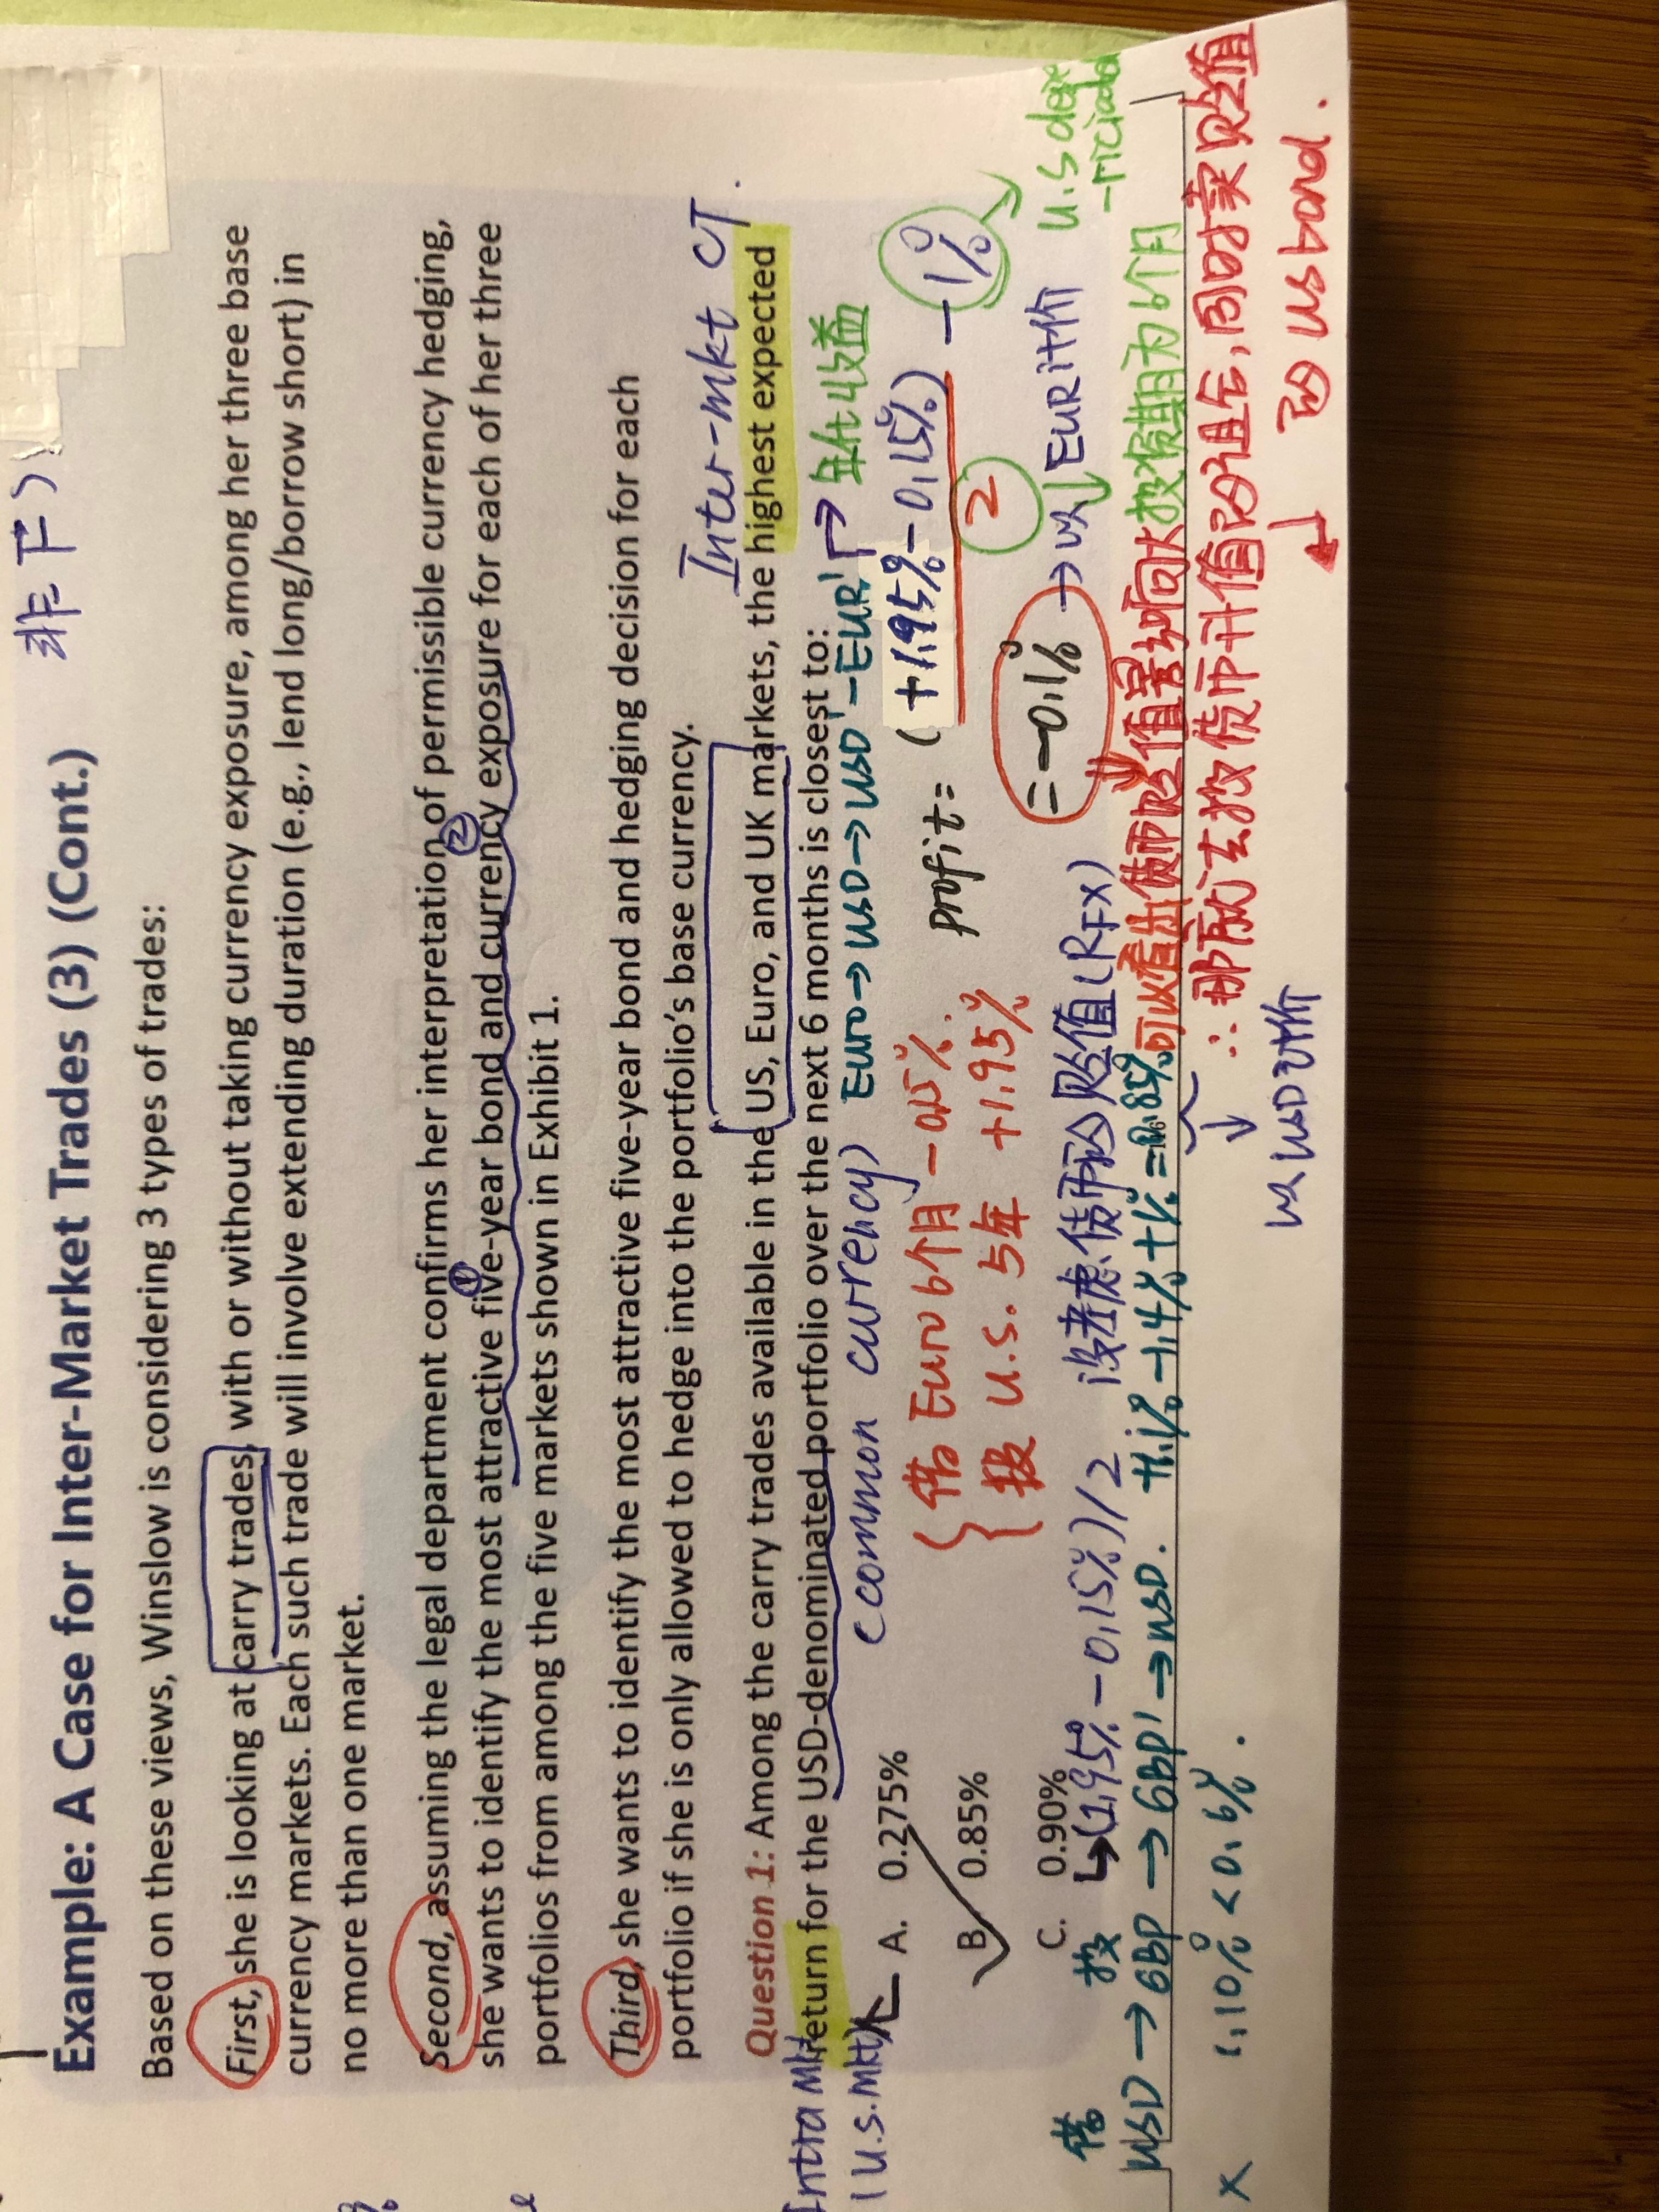 非下)
Example: A Case for Inter-Market Trades (3) (Cont.)
Based on these views, Winslow is considering 3 types of trades:
First, she is looking at carry trades, with or without taking currency exposure, among her three base
currency markets. Each such trade will involve extending duration (e.g., lend long/borrow short) in
no more than one market.
Second, assuming the legal department confirms her interpretation of permissible currency hedging,
she wants to identify the most attractive five-year bond and currency exposure for each of her three
portfolios from among the five markets shown in Exhibit 1.
① ②
Third, she wants to identify the most attractive five-year bond and hedging decision for each
portfolio if she is only allowed to hedge into the portfolio's base currency.
Inter-mkt CT.
Question 1: Among the carry trades available in the US, Euro, and UK markets, the highest expected
return for the USD-denominated portfolio over the next 6 months is closest to:
Intra Mkt
(U.S.Mkt)
(common currency) Euro→USD→USD'→EUR' 年化收益
A. 0.275%
B. 0.85%
C. 0.90%
{ 借 Euro 6个月 -0.15%.
投 U.S. 5年 +1.95%
profit = (+1.95% - 0.15%) / 2 - 1%
= -0.1% → 以EUR计价
U.S depre
-riciation
↳(1.95% - 0.15%)/2 没考虑货币的贬值(RFX)
投资期为6个月
借 投
USD → GBP → GBP' → USD. +1.1% -1.4% + 1% = 0.85%
可以看出货币贬值影响大
× 1.10% < 0.6%.
以USD计价
∴ 那所以去投货币升值的,同时卖贬值
的 US bond.